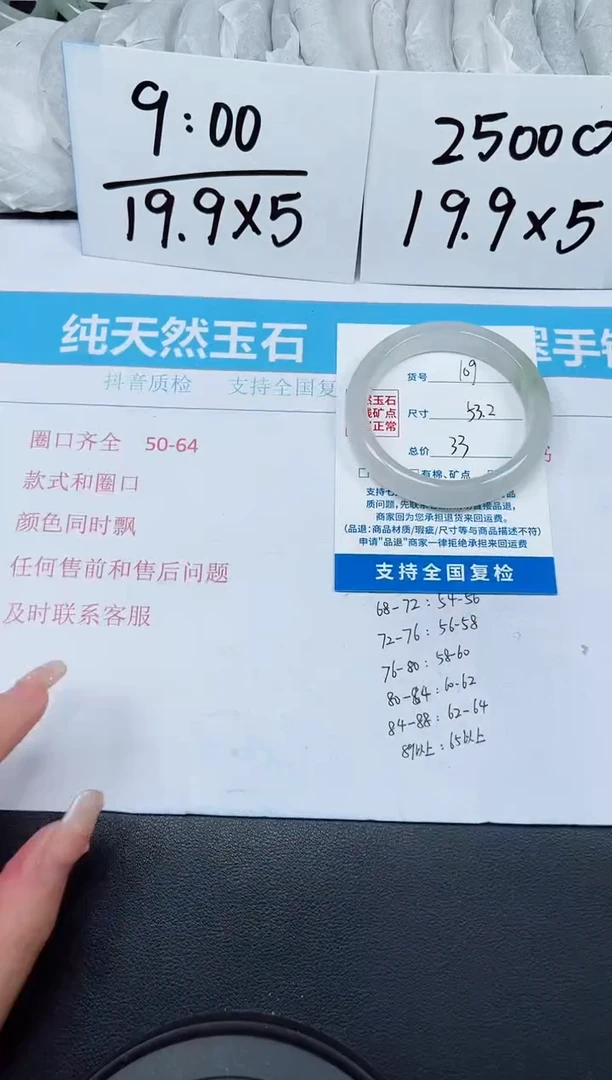 9:00
19.9×5
25000
19.9×5
纯天然玉石
翠手
抖音质检 支持全国复
圈口齐全 50-64
款式和圈口
颜色同时飘
任何售前和售后问题
及时联系客服
货号 169
尺寸 53.2
总价 33
然玉石
矿点
正常
有棉、矿点
质问题,先联
直接品退,
商家回为您承担退货来回运费。
(品退:商品材质/瑕疵/尺寸等与商品描述不符)
申请"品退"商家一律拒绝承担来回运费
支持全国复检
68-72:54-56
72-76:56-58
76-80:58-60
80-84:60-62
84-88:62-64
89以上:65以上